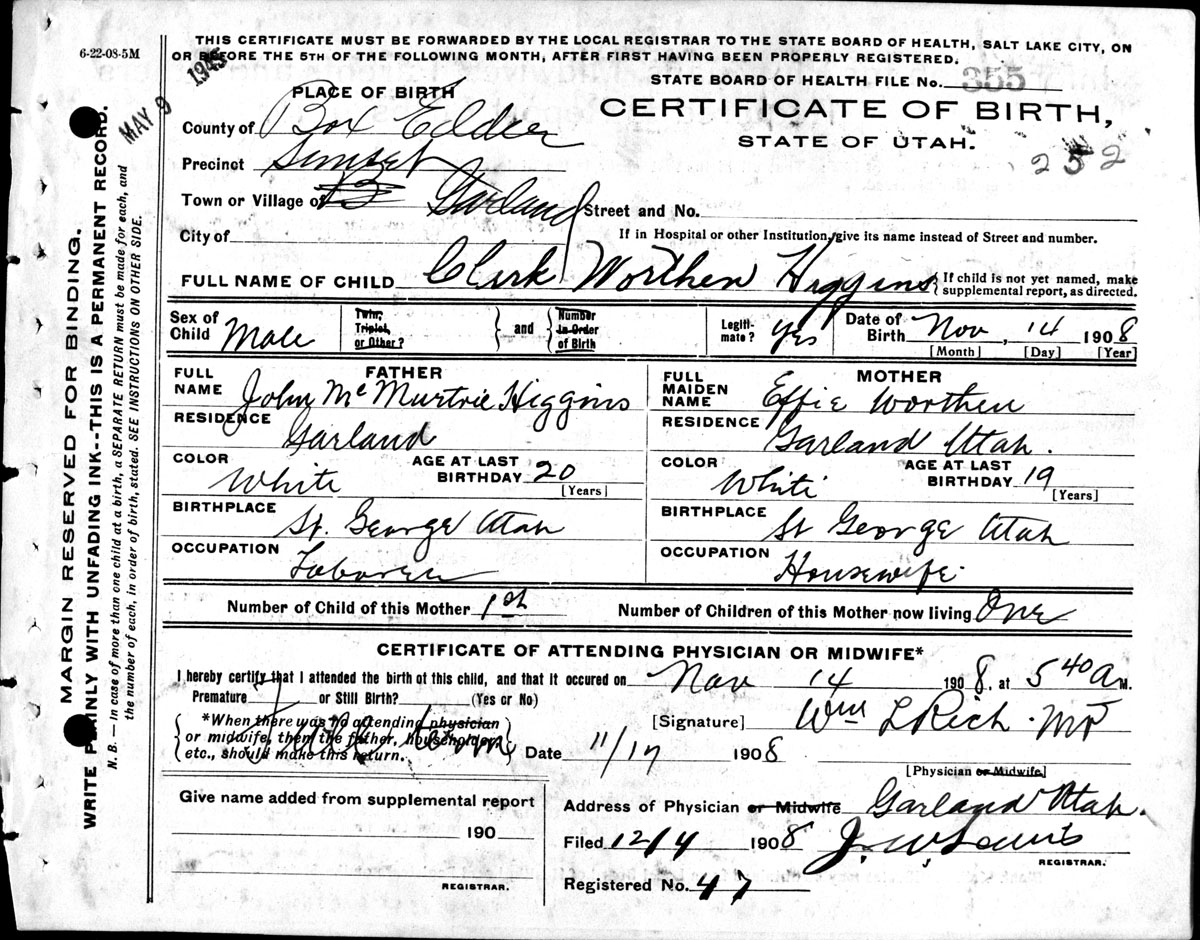 6-22-08-5M
THIS CERTIFICATE MUST BE FORWARDED BY THE LOCAL REGISTRAR TO THE STATE BOARD OF HEALTH, SALT LAKE CITY, ON
OR BEFORE THE 5TH OF THE FOLLOWING MONTH, AFTER FIRST HAVING BEEN PROPERLY REGISTERED.
MAY 9 1945
STATE BOARD OF HEALTH FILE No. 355
PLACE OF BIRTH
CERTIFICATE OF BIRTH,
STATE OF UTAH.
252
County of Box Elder
Precinct Sunset
Town or Village of Garland Street and No.
City of If in Hospital or other Institution, give its name instead of Street and number.
FULL NAME OF CHILD Clark Worthen Higgins { If child is not yet named, make
supplemental report, as directed.
Sex of Child Male Twin, Triplet, or Other? } and { Number In Order of Birth Legiti-mate? Yes Date of Birth Nov. 14 1908
[Month] [Day] [Year]
FATHER
FULL NAME John McMurtrie Higgins
RESIDENCE Garland
COLOR White AGE AT LAST BIRTHDAY 20
[Years]
BIRTHPLACE St. George Utah
OCCUPATION Laborer
MOTHER
FULL MAIDEN NAME Effie Worthen
RESIDENCE Garland Utah.
COLOR White AGE AT LAST BIRTHDAY 19
[Years]
BIRTHPLACE St George Utah
OCCUPATION Housewife
Number of Child of this Mother 1st Number of Children of this Mother now living One
CERTIFICATE OF ATTENDING PHYSICIAN OR MIDWIFE*
I hereby certify that I attended the birth of this child, and that it occured on Nov 14 1908, at 5 40 A M.
Premature or Still Birth? (Yes or No)
{ *When there was no attending physician
or midwife, then the father, householder,
etc., should make this return. }
[Signature] Wm L Rich MD
Date 11/17 1908
[Physician or Midwife]
Give name added from supplemental report
190
REGISTRAR.
Address of Physician or Midwife Garland Utah.
Filed 12/4 1908 J. W.
REGISTRAR.
Registered No. 47
MARGIN RESERVED FOR BINDING.
WRITE PLAINLY WITH UNFADING INK--THIS IS A PERMANENT RECORD.
N. B. — In case of more than one child at a birth, a SEPARATE RETURN must be made for each, and
the number of each, in order of birth, stated. SEE INSTRUCTIONS ON OTHER SIDE.